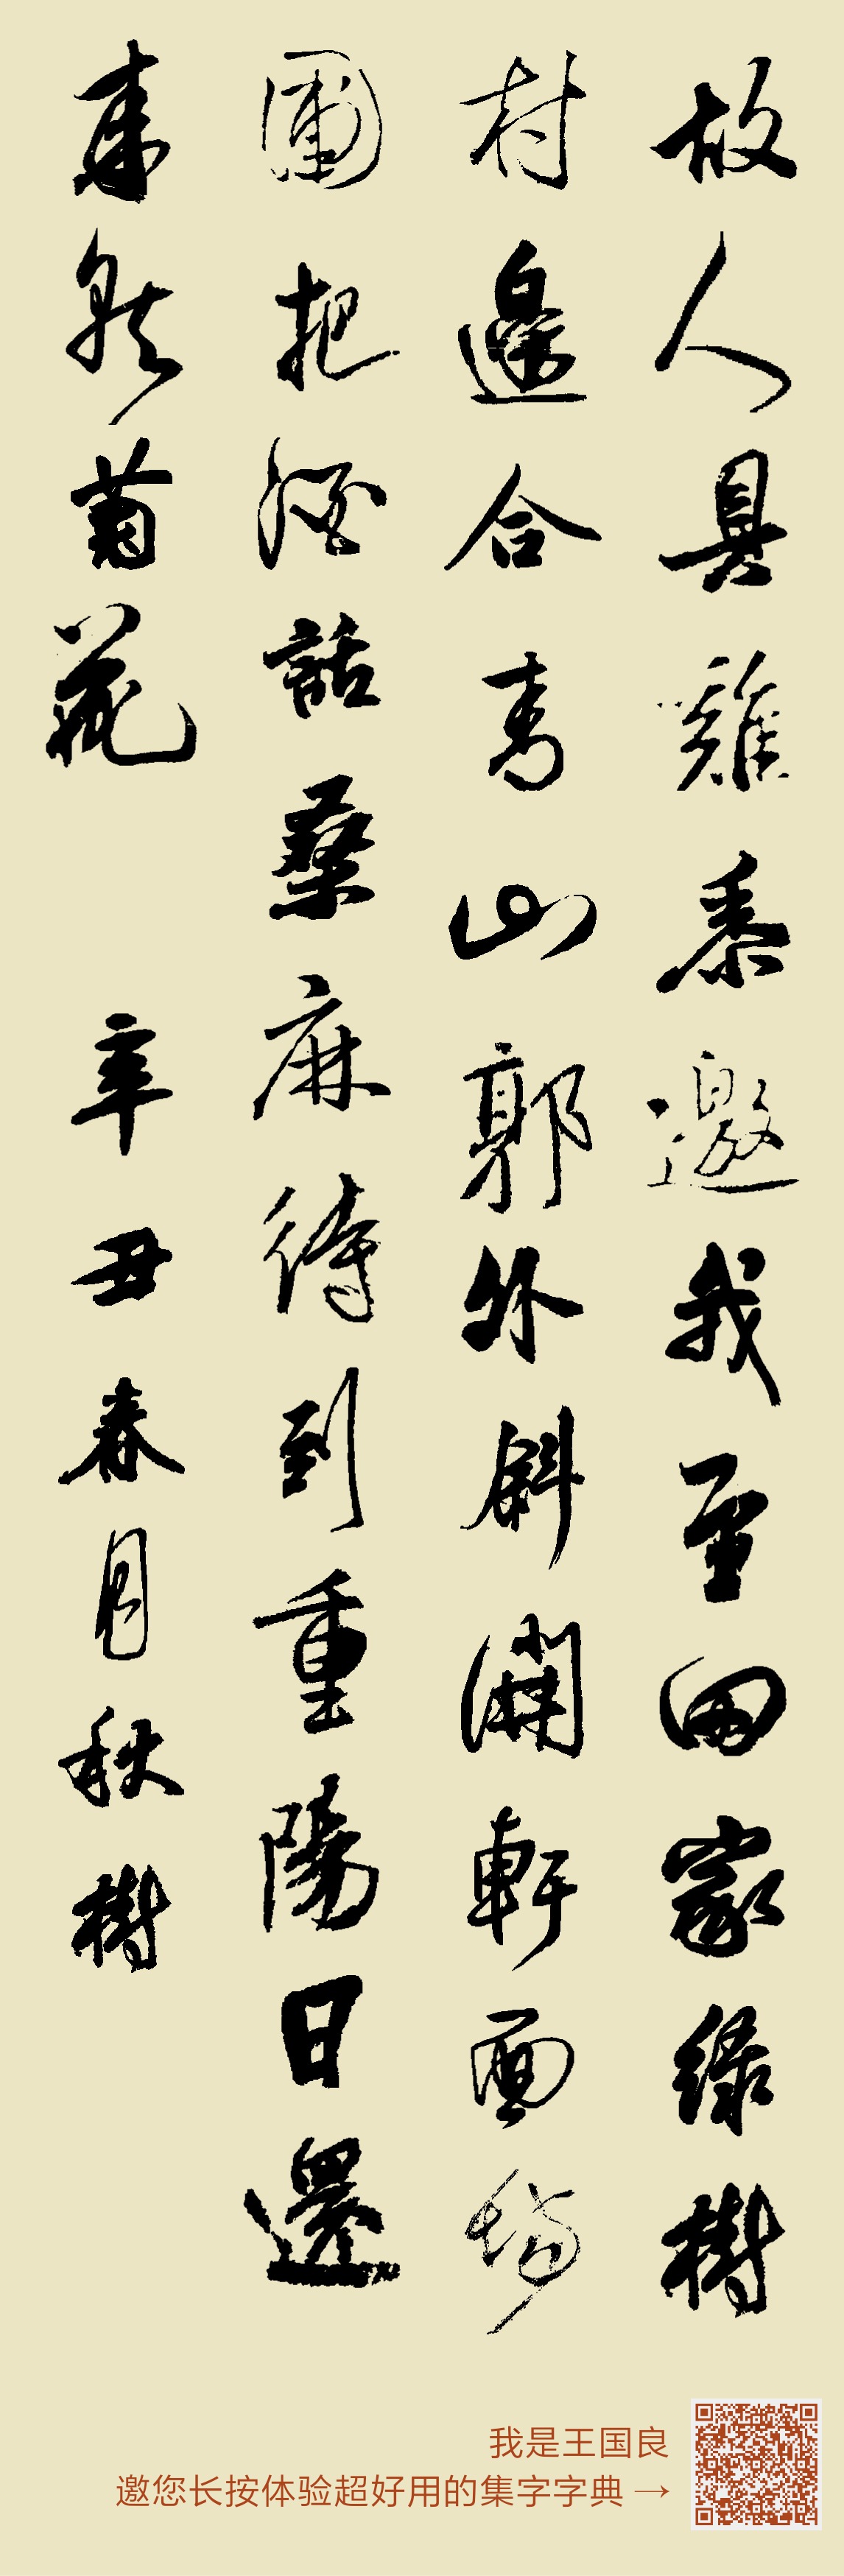 故人具雞黍邀我至田家綠樹
村邊合青山郭外斜開軒面場
圃把酒話桑麻待到重陽日還
來就菊花 辛丑春月秋樹
我是王国良
邀您长按体验超好用的集字字典 →